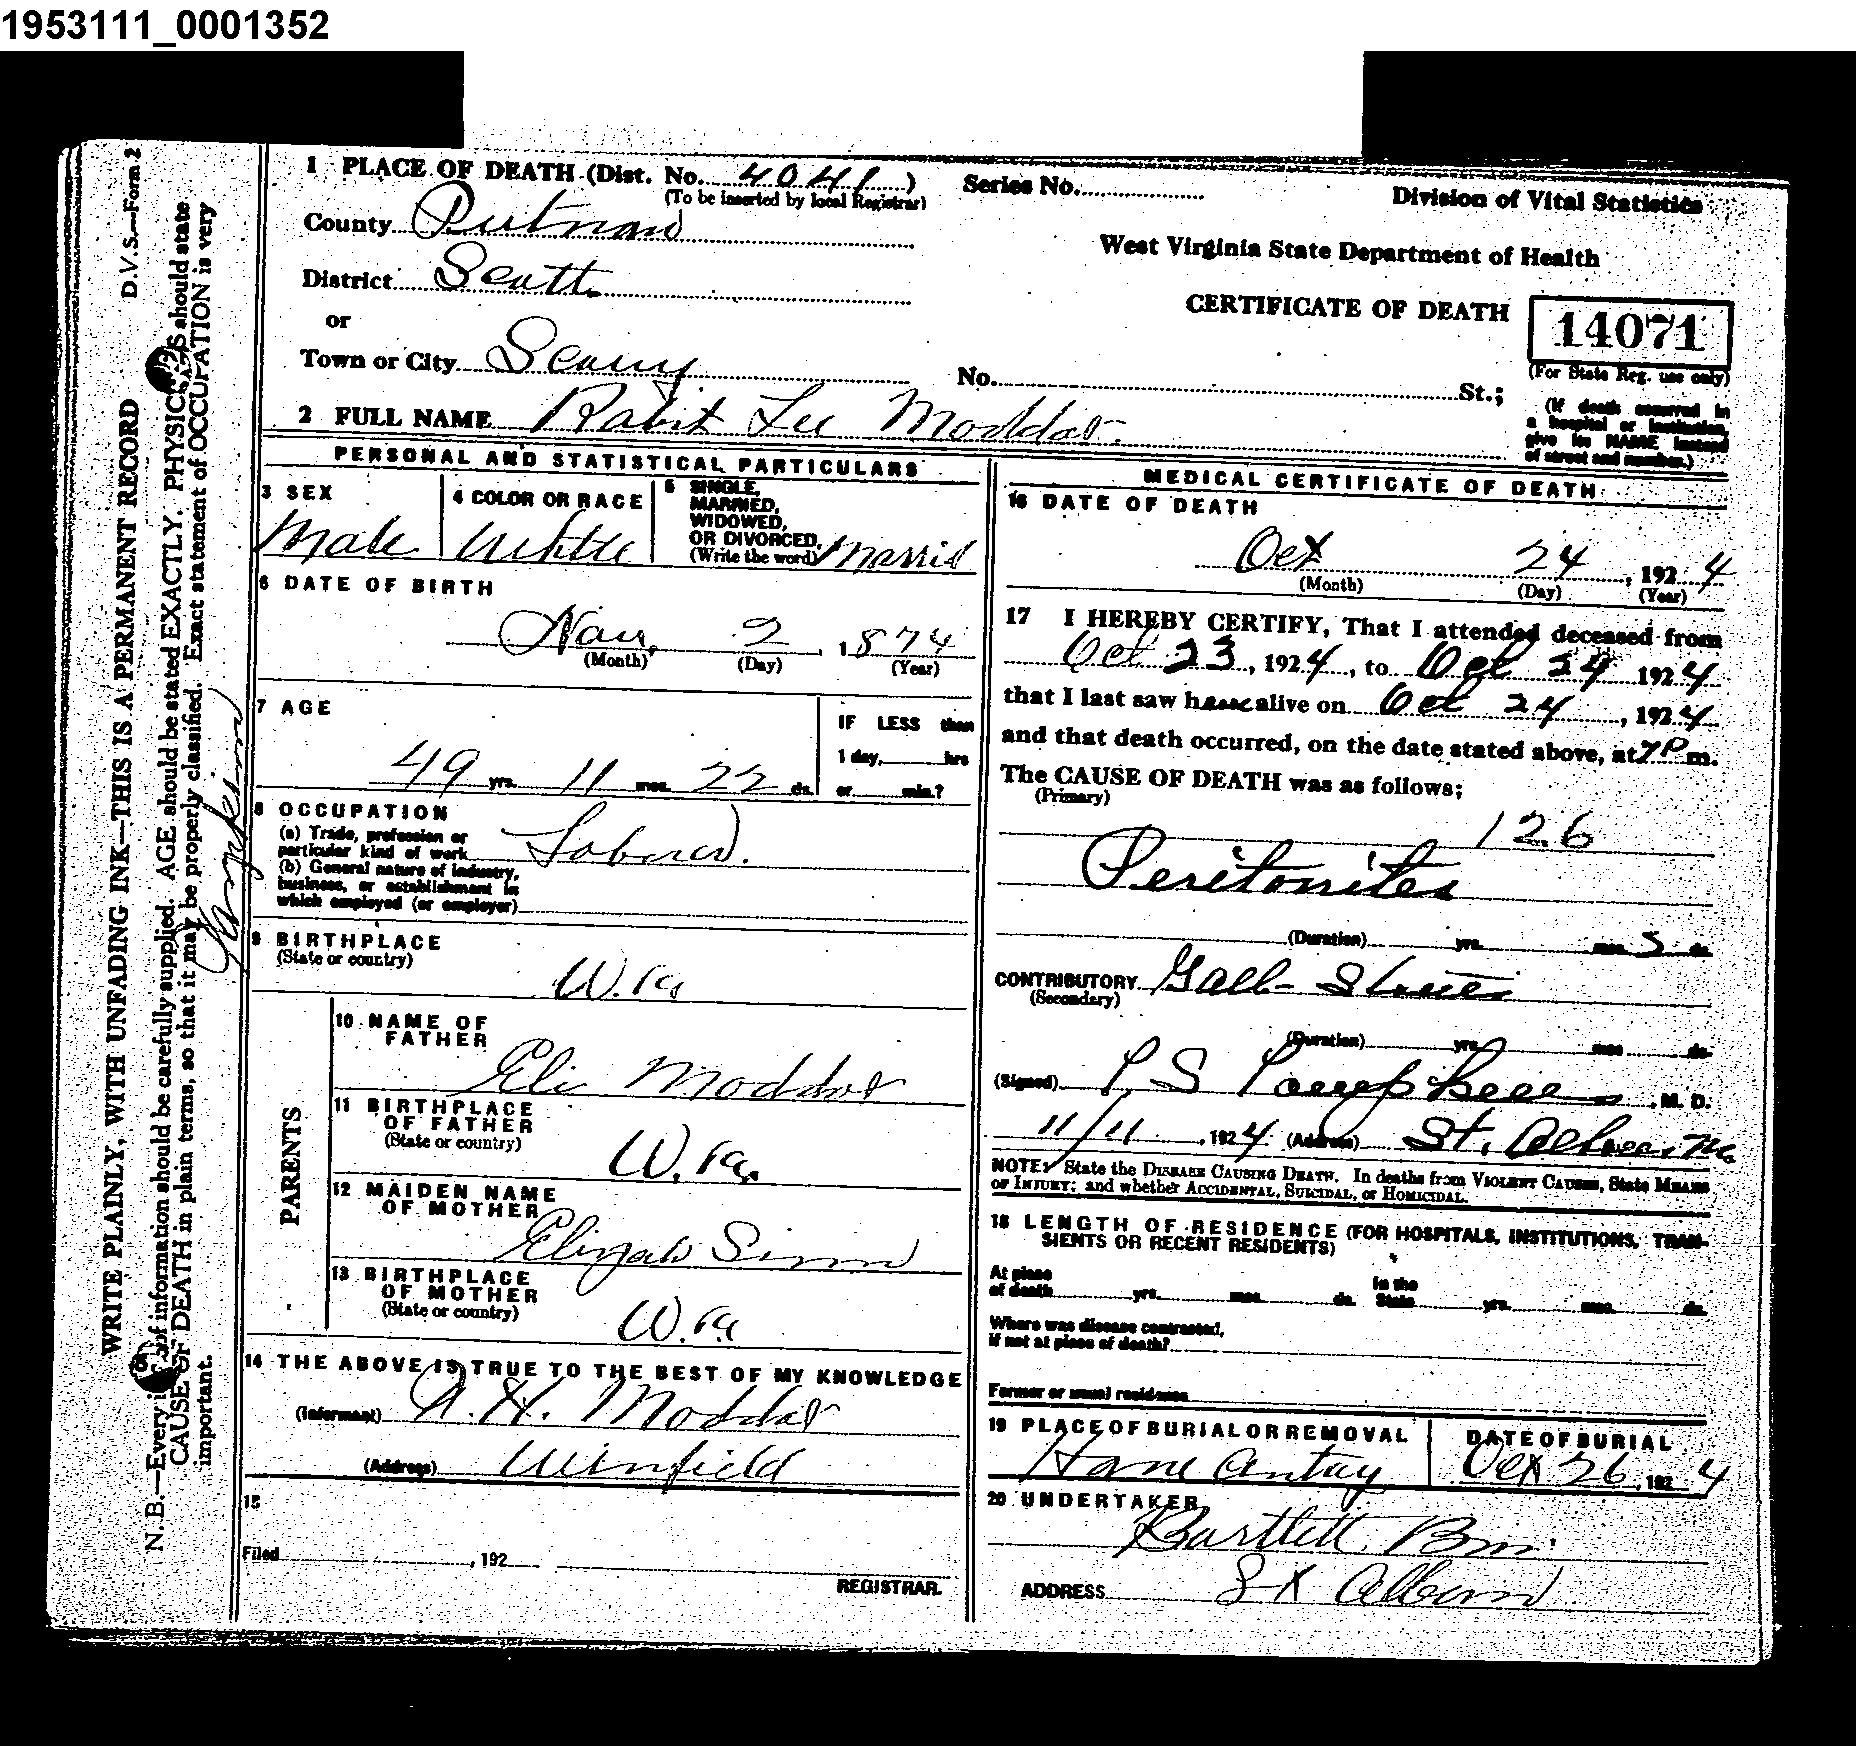 1953111_0001352
1 PLACE OF DEATH (Dist. No. 4041)
(To be inserted by local Registrar)
Series No.
Division of Vital Statistics
County Putnam
West Virginia State Department of Health
District Scott
CERTIFICATE OF DEATH
14071
(For State Reg. use only)
or
Town or City Scary
No. St.;
(If death occurred in
a hospital or institution,
give its NAME instead
of street and number.)
2 FULL NAME Lee
PERSONAL AND STATISTICAL PARTICULARS
3 SEX
Male
4 COLOR OR RACE
White
5 SINGLE,
MARRIED,
WIDOWED,
OR DIVORCED,
(Write the word) Marrid
6 DATE OF BIRTH
Nov. 2, 1874
(Month) (Day) (Year)
7 AGE
49 yrs. 11 mos. 22 ds.
IF LESS than
1 day, hrs
or min.?
8 OCCUPATION
(a) Trade, profession or
particular kind of work
(b) General nature of industry,
business, or establishment in
which employed (or employer)
9 BIRTHPLACE
(State or country)
W. Va
PARENTS
10 NAME OF
FATHER
Eli
11 BIRTHPLACE
OF FATHER
(State or country)
W. Va.
12 MAIDEN NAME
OF MOTHER
13 BIRTHPLACE
OF MOTHER
(State or country)
W. Va
14 THE ABOVE IS TRUE TO THE BEST OF MY KNOWLEDGE
(Informant)
(Address) Winfield
15
Filed , 192
REGISTRAR.
MEDICAL CERTIFICATE OF DEATH
16 DATE OF DEATH
Oct 24, 1924
(Month) (Day) (Year)
17 I HEREBY CERTIFY, That I attended deceased from
Oct 23, 1924, to Oct 24 1924
that I last saw h alive on Oct 24, 1924
and that death occurred, on the date stated above, at 7 P m.
The CAUSE OF DEATH was as follows;
(Primary)
126
Peritonites
(Duration) yrs. mos. 5 ds.
CONTRIBUTORY Gall-Stones
(Secondary)
(Duration) yrs. mos. ds.
(Signed) M. D.
11/11, 1924 (Address) St.
NOTE: State the DISEASE CAUSING DEATH. In deaths from VIOLENT CAUSES, State MEANS
OF INJURY; and whether ACCIDENTAL, SUICIDAL, or HOMICIDAL.
18 LENGTH OF RESIDENCE (FOR HOSPITALS, INSTITUTIONS, TRAN-
SIENTS OR RECENT RESIDENTS)
At place
of death yrs. mos. ds.
In the
State yrs. mos. ds.
Where was disease contracted,
if not at place of death?
Former or usual residence
19 PLACE OF BURIAL OR REMOVAL
DATE OF BURIAL
Oct 26, 1924
20 UNDERTAKER
Bartlett
ADDRESS
D.V.S.—Form 2
WRITE PLAINLY, WITH UNFADING INK—THIS IS A PERMANENT RECORD
N. B.—Every of information should be carefully supplied. AGE should be stated EXACTLY. PHYSICIANS should state
CAUSE OF DEATH in plain terms, so that it may be properly classified. Exact statement of OCCUPATION is very
important.